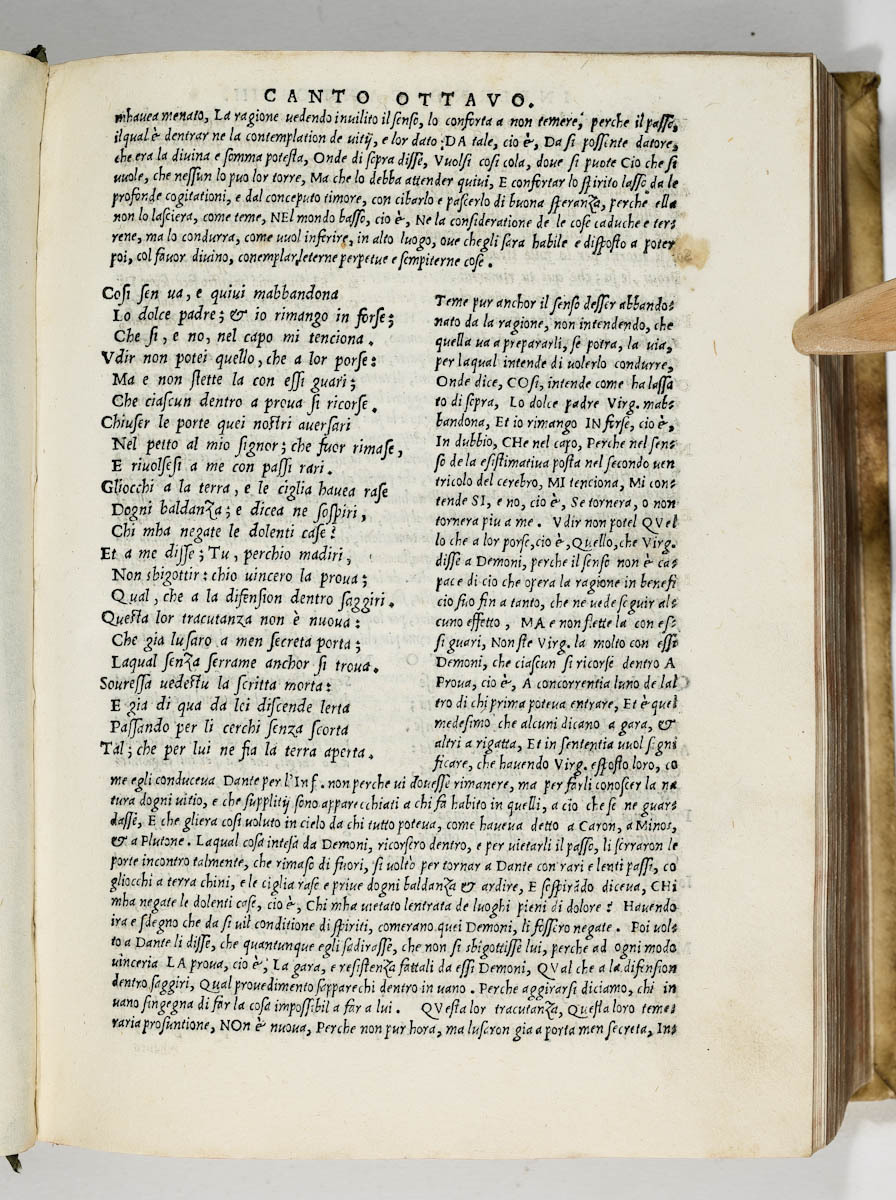 CANTO OTTAVO.
mhavea menato, La ragione uedendo inuilito il senso, lo conforta a non temere, perche il passo,
ilqual è dentrar ne la contemplation de uitij, e lor dato; DA tale, cio è, Da si possente datore,
che era la diuina e somma potesta, Onde di sopra disse, Vuolsi cosi cola, doue si puote Cio che si
uuole, che nessun lo puo lor torre, Ma che lo debba attender quiui, E confortar lo spirito lasso da le
profonde cogitationi, e dal conceputo timore, con cibarlo e pascerlo di buona speranza, perche ella
non lo lasciera, come teme, NEl mondo basso, cio è, Ne la consideratione de le cose caduche e ter⸗
rene, ma lo condurra, come uuol inferire, in alto luogo, oue chegli sara habile e disposto a poter
poi, col fauor diuino, conemplar leterne perpetue e sempiterne cose.
Cosi sen ua, e quiui mabbandona
Lo dolce padre; & io rimango in forse;
Che si, e no, nel capo mi tenciona.
Vdir non potei quello, che a lor porse:
Ma e non stette la con essi guari;
Che ciascun dentro a proua si ricorse.
Chiuser le porte quei nostri auersari
Nel petto al mio signor; che fuor rimase,
E riuolsesi a me con passi rari.
Gliocchi a la terra, e le ciglia hauea rase
Dogni baldanza; e dicea ne sospiri,
Chi mha negate le dolenti case?
Et a me disse; Tu, perchio madiri,
Non sbigottir: chio uincero la proua;
Qual, che a la difension dentro saggiri.
Questa lor tracutanza non è nuoua:
Che gia lusaro a men secreta porta;
Laqual senza serrame anchor si troua.
Souressa uedestu la scritta morta:
E gia di qua da lei discende lerta
Passando per li cerchi senza scorta
Tal; che per lui ne fia la terra aperta.
Teme pur anchor il senso desser abbando⸗
nato da la ragione, non intendendo, che
quella ua a prepararli, se potra, la uia,
per laqual intende di uolerlo condurre,
Onde dice, COsi, intende come ha lassa
to di sopra, Lo dolce padre Virg. mab⸗
bandona, Et io rimango IN forse, cio è,
In dubbio, CHe nel capo, Perche nel sen⸗
so de la esistimatiua posta nel secondo uen
tricolo del cerebro, MI tenciona, Mi con⸗
tende SI, e no, cio è, Se tornera, o non
tornera piu a me. Vdir non poteI QVel
lo che a lor porse, cio è, Quello, che Virg.
disse a Demoni, perche il senso non è ca⸗
pace di cio che opera la ragione in benefi
cio suo fin a tanto, che ne uede seguir al⸗
cuno effetto, MA e non stette la con es⸗
si guari, Non ste Virg. la molto con essi
Demoni, che ciascun si ricorse dentro A
Proua, cio è, A concorrentia luno de lal
tro di chi prima poteua entrare, Et è quel
medesimo che alcuni dicano a gara, &
altri a rigatta, Et in sententia uuol signi
ficare, che hauendo Virg. esposto loro, co
me egli conduceua Dante per l'Inf. non perche ui douesse rimanere, ma per farli conoscer la na
tura dogni uitio, e che supplitij sono apparecchiati a chi fa habito in quelli, a cio che se ne guar⸗
dasse, E che gliera cosi uoluto in cielo da chi tutto poteua, come haueua detto a Caron, a Minos,
& a Plutone. Laqual cosa intesa da Demoni, ricorsero dentro, e per uietarli il passo, li serraron le
porte incontro talmente, che rimaso di fuori, si uolto per tornar a Dante con rari e lenti passi, co
gliocchi a terra chini, e le ciglia rase e priue dogni baldanza & ardire, E sospirãdo diceua, CHi
mha negate le dolenti case, cio è, Chi mha uietato lentrata de luoghi pieni di dolore? Hauendo
ira e sdegno che da si uil conditione di spiriti, comerano quei Demoni, li fossero negate. Poi uol⸗
to a Dante li disse, che quantunque egli sadirasse, che non si sbigottisse lui, perche ad ogni modo
uinceria LA proua, cio è, La gara, e resistenza fattali da essi Demoni, QVal che a la difension
dentro saggiri, Qual prouedimento sapparechi dentro in uano. Perche aggirarsi diciamo, chi in
uano singegna di far la cosa impossibil a far a lui. QVesta lor tracutanza, Questa loro teme⸗
raria prosuntione, NOn è nuoua, Perche non pur hora, ma lusaron gia a porta men secreta, In⸗